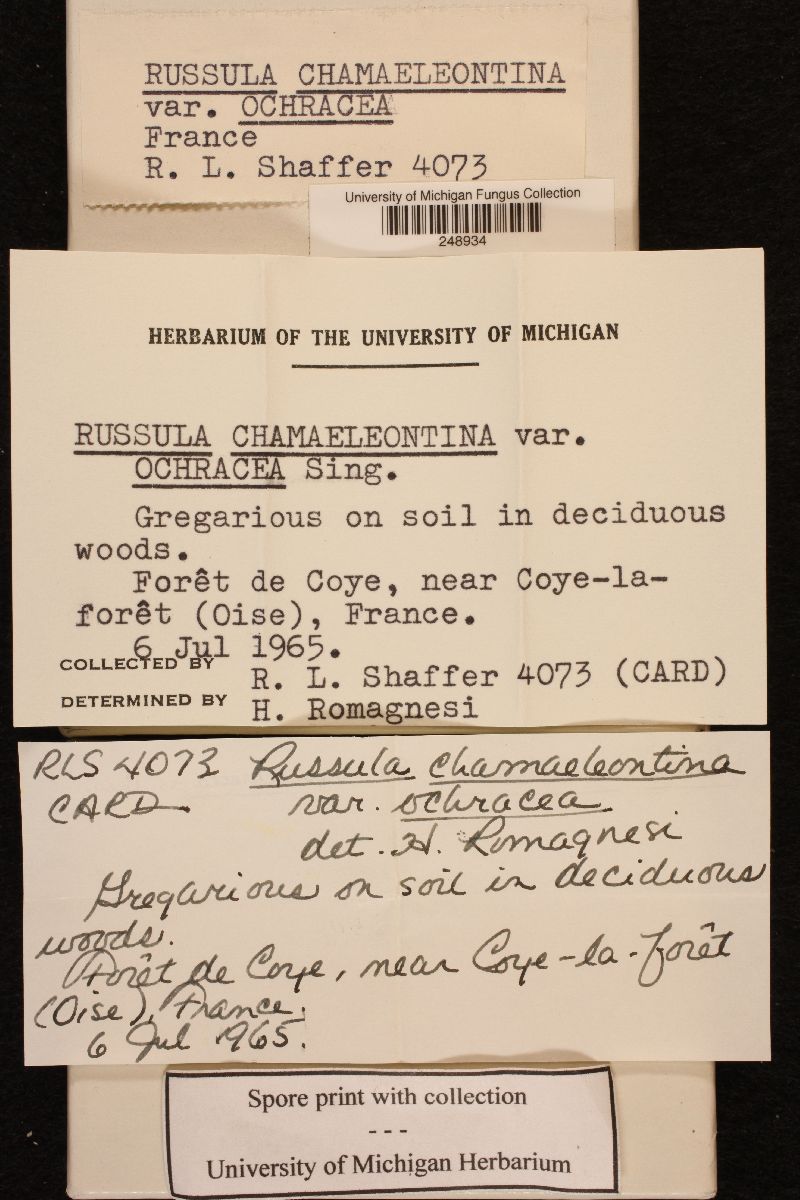 RUSSULA CHAMAELEONTINA
var. OCHRACEA
France
R. L. Shaffer 4073
University of Michigan Fungus Collection
248934
HERBARIUM OF THE UNIVERSITY OF MICHIGAN
RUSSULA CHAMAELEONTINA var.
OCHRACEA Sing.
Gregarious on soil in deciduous
woods.
Forêt de Coye, near Coye-la-
forêt (Oise), France.
6 Jul 1965.
COLLECTED BY R. L. Shaffer 4073 (CARD)
DETERMINED BY H. Romagnesi
RLS 4073 Russula chamaeleontina
CARD var. ochracea
det. H. Romagnesi
Gregarious on soil in deciduous
woods.
Forêt de Coye, near Coye-la-forêt
(Oise), France.
6 Jul 1965.
Spore print with collection
---
University of Michigan Herbarium